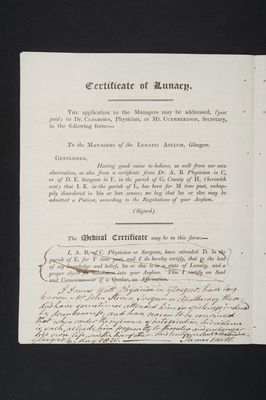 Certificate of Lunacy.
The application to the Managers may be addressed, (post
paid) to Dr. Cleghorn, Physician, or Mr. Cuthbertson, Secretary,
in the following form:—
To the Managers of the Lunatic Asylum, Glasgow.
Gentlemen,
Having good cause to believe, as well from our own
observation, as also from a certificate from Dr. A. B. Physician in C,
or of D. E. Surgeon in F, in the parish of G, County of H, (herewith
sent) that I. K. in the parish of L, has been for M time past, unhap-
pily disordered in his or her senses; we beg that he or she may be
admitted a Patient, according to the Regulations of your Asylum.
(Signed)
The Medical Certificate may be in this form:—
I, A. B. of C. Physician or Surgeon, have attended D. in the
parish of E. for F time past, and I do hereby certify, that to the best
of my knowledge and belief, he or she is in a state of Lunacy, and a
proper object for admission into your Asylum. This I testify on Soul
and Conscience—or if a Quaker, on Affirmation.
I James Watt Physician in Glasgow, have long
known Mr John Niven, Surgeon
have sometimes attended him
by drunkenness, and have reason to be convinced
that when under the influence of intoxication his violence
is such as leads him frequently to threaten and endanger
his own life, and the lives of
Glasgow 4 May 1816 James Watt